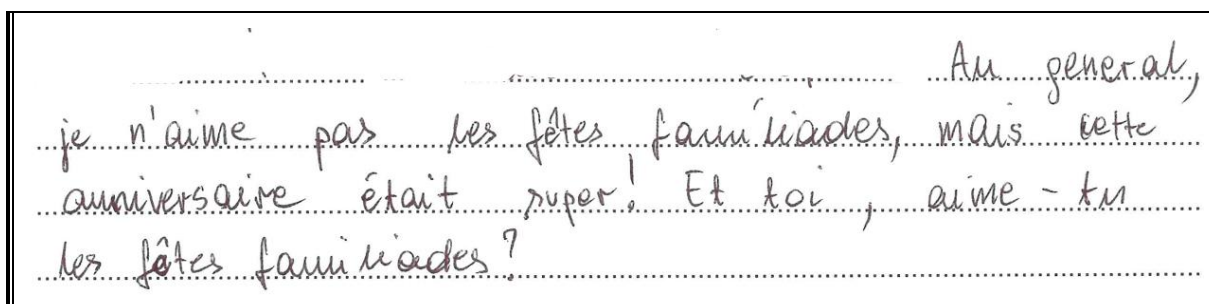 Au general,
je n'aime pas les fêtes familiades, mais cette
anniversaire était super! Et toi, aime-tu
les fêtes familiades?